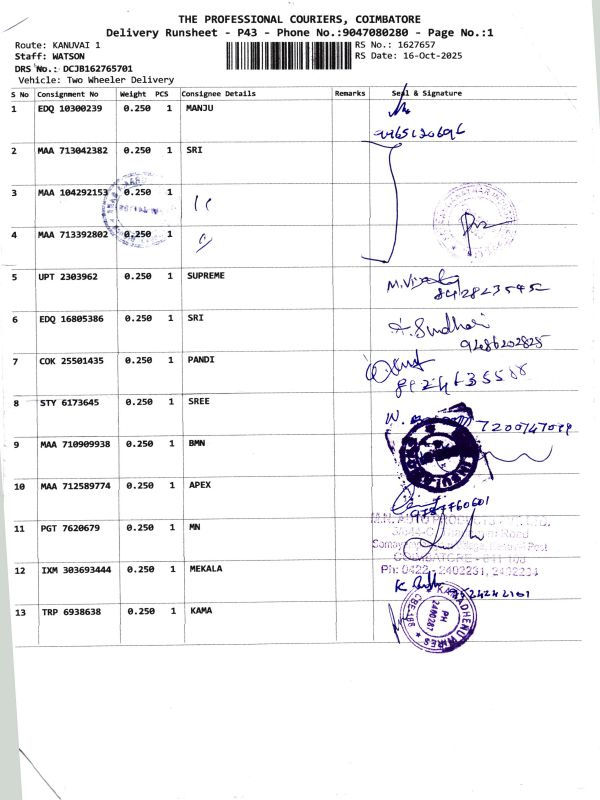 THE PROFESSIONAL COURIERS, COIMBATORE
Delivery Runsheet - P43 - Phone No.:9047080280 - Page No.:1
Route: KANUVAI 1
RS No.: 1627657
Staff: WATSON
RS Date: 16-Oct-2025
DRS No.: DCJB162765701
Vehicle: Two Wheeler Delivery
S No Consignment No Weight PCS Consignee Details Remarks Seal & Signature
1 EDQ 10300239 0.250 1 MANJU
2 MAA 713042382 0.250 1 SRI
3 MAA 104292153 0.250 1 "
4 MAA 713392802 0.250 1 "
5 UPT 2303962 0.250 1 SUPREME
8428235452
6 EDQ 16805386 0.250 1 SRI
9486202825
7 COK 25501435 0.250 1 PANDI
8 STY 6173645 0.250 1 SREE
7200747029
9 MAA 710909938 0.250 1 BMN
10 MAA 712589774 0.250 1 APEX
11 PGT 7620679 0.250 1 MN
COIMBATORE - 641 108
Ph: 0422 - 2402231, 2432234
12 IXM 303693444 0.250 1 MEKALA
13 TRP 6938638 0.250 1 KAMA
KAMADHENU WIRES
CBE-108
PH
2400287